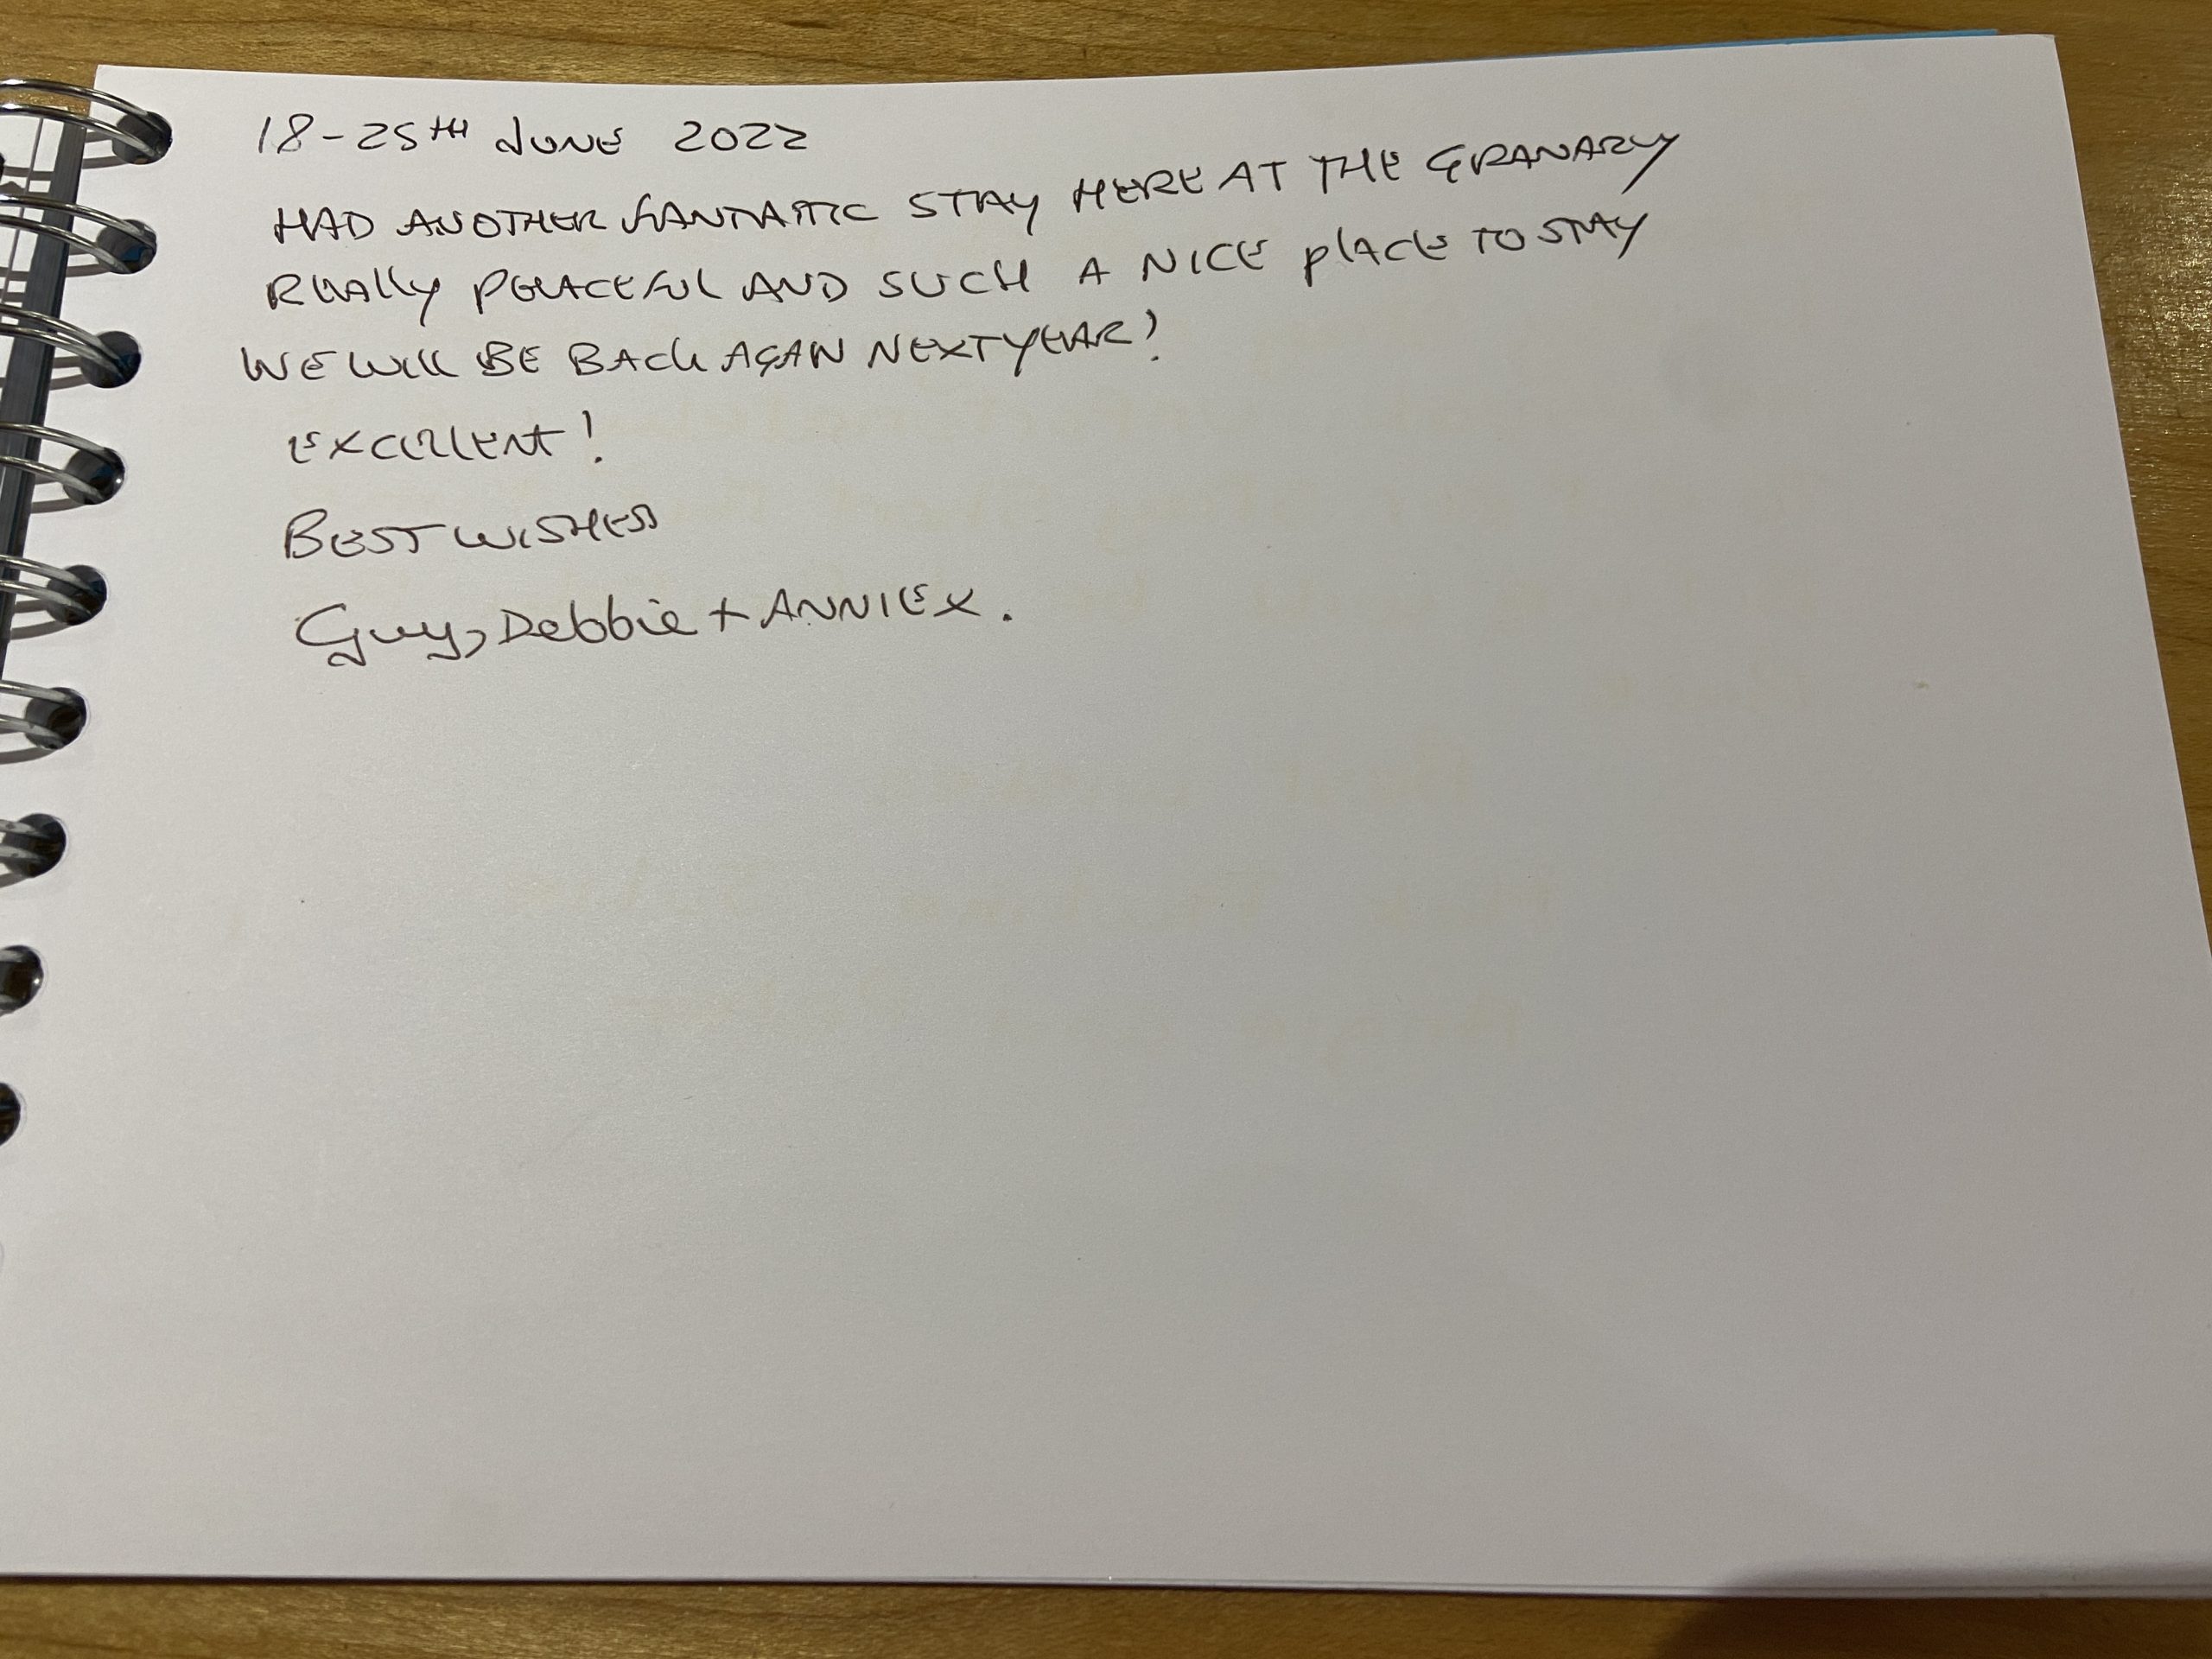 18-25TH JUNE 2022
HAD ANOTHER FANTASTIC STAY HERE AT THE GRANARY
REALLY PEACEFUL AND SUCH A NICE PLACE TO STAY
WE WILL BE BACK AGAIN NEXT YEAR!
EXCELLENT!
BEST WISHES
Guy, Debbie + ANNIE X.